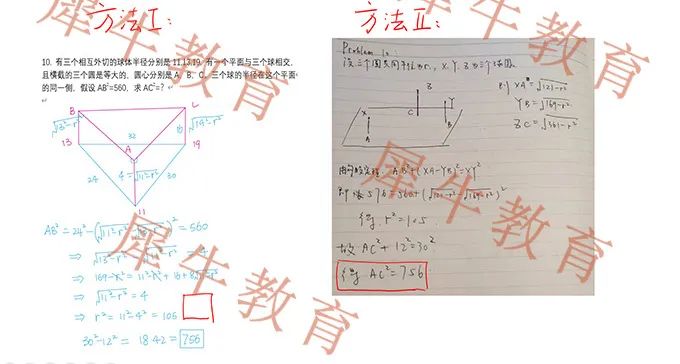 方法Ⅰ:
10. 有三个相互外切的球体半径分别是 11,13,19. 有一个平面与三个球相交,
且横截的三个圆是等大的, 圆心分别是 A、B、C。三个球的半径在这个平面
的同一侧. 假设 AB²=560, 求 AC²=?
B
L
√13²-r²
32
√19²-r²
13
A
19
24
4=√11²-r²
30
11
AB² = 24² - (√11²-r² - √13²-r²)² = 560
⇒ √13²-r² - √11²-r² = 4
⇒ 169-r² = 11²-r² + 16 + 8√11²-r²
⇒ √11²-r² = 4
⇒ r² = 11²-4² = 105
30²-12² = 18·42 = 756
方法Ⅱ:
Problem 10:
设三个圆共同半径为r, X、Y、Z为三个球心
则 XA=√121-r²
YB=√169-r²
ZC=√361-r²
Z
X
Y
C
A
B
由勾股定理: AB²+(XA-YB)²=XY²
即 576=560+(√121-r²-√169-r²)²
得 r²=105
故 AC²+12²=30²
得 AC²=756
犀牛教育
犀牛教育
犀牛教育
犀牛教育